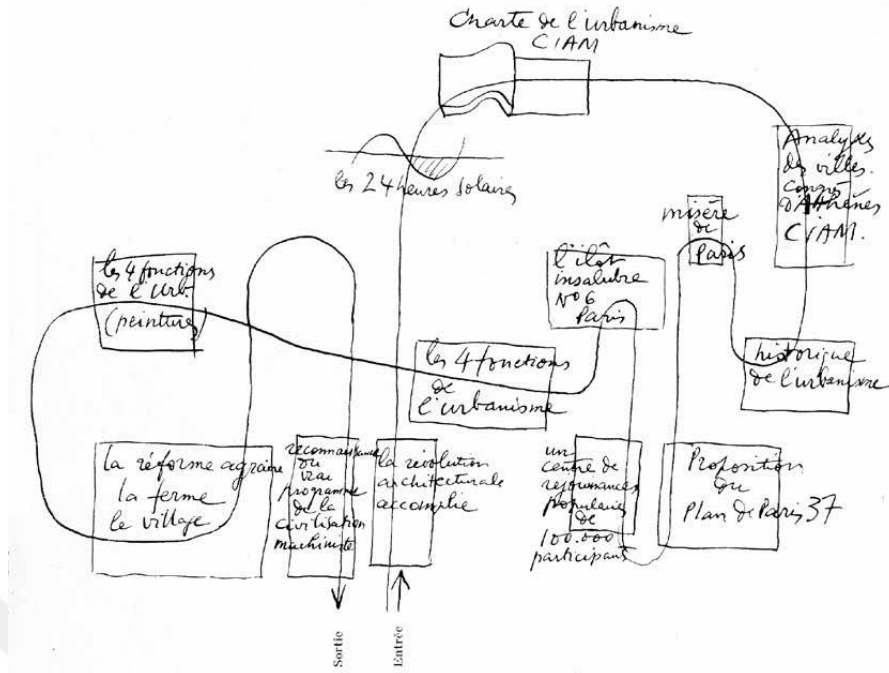 Charte de l'urbanisme
CIAM
les 24 heures solaires
Analyses
des villes.
congrès
d'Athènes
CIAM.
misère
de
Paris
l'ilôt
insalubre
No 6
Paris
les 4 fonctions
de l'Urb.
(peinture)
les 4 fonctions
de
l'urbanisme
historique
de l'urbanisme
la réforme agraire
la ferme
le village
reconnaissance
du
vrai
programme
de la
civilisation
machiniste
la révolution
architecturale
accomplie
un
centre de
réjouissances
populaires
de
100.000
participants
Proposition
du
Plan de Paris 37
Sortie
Entrée